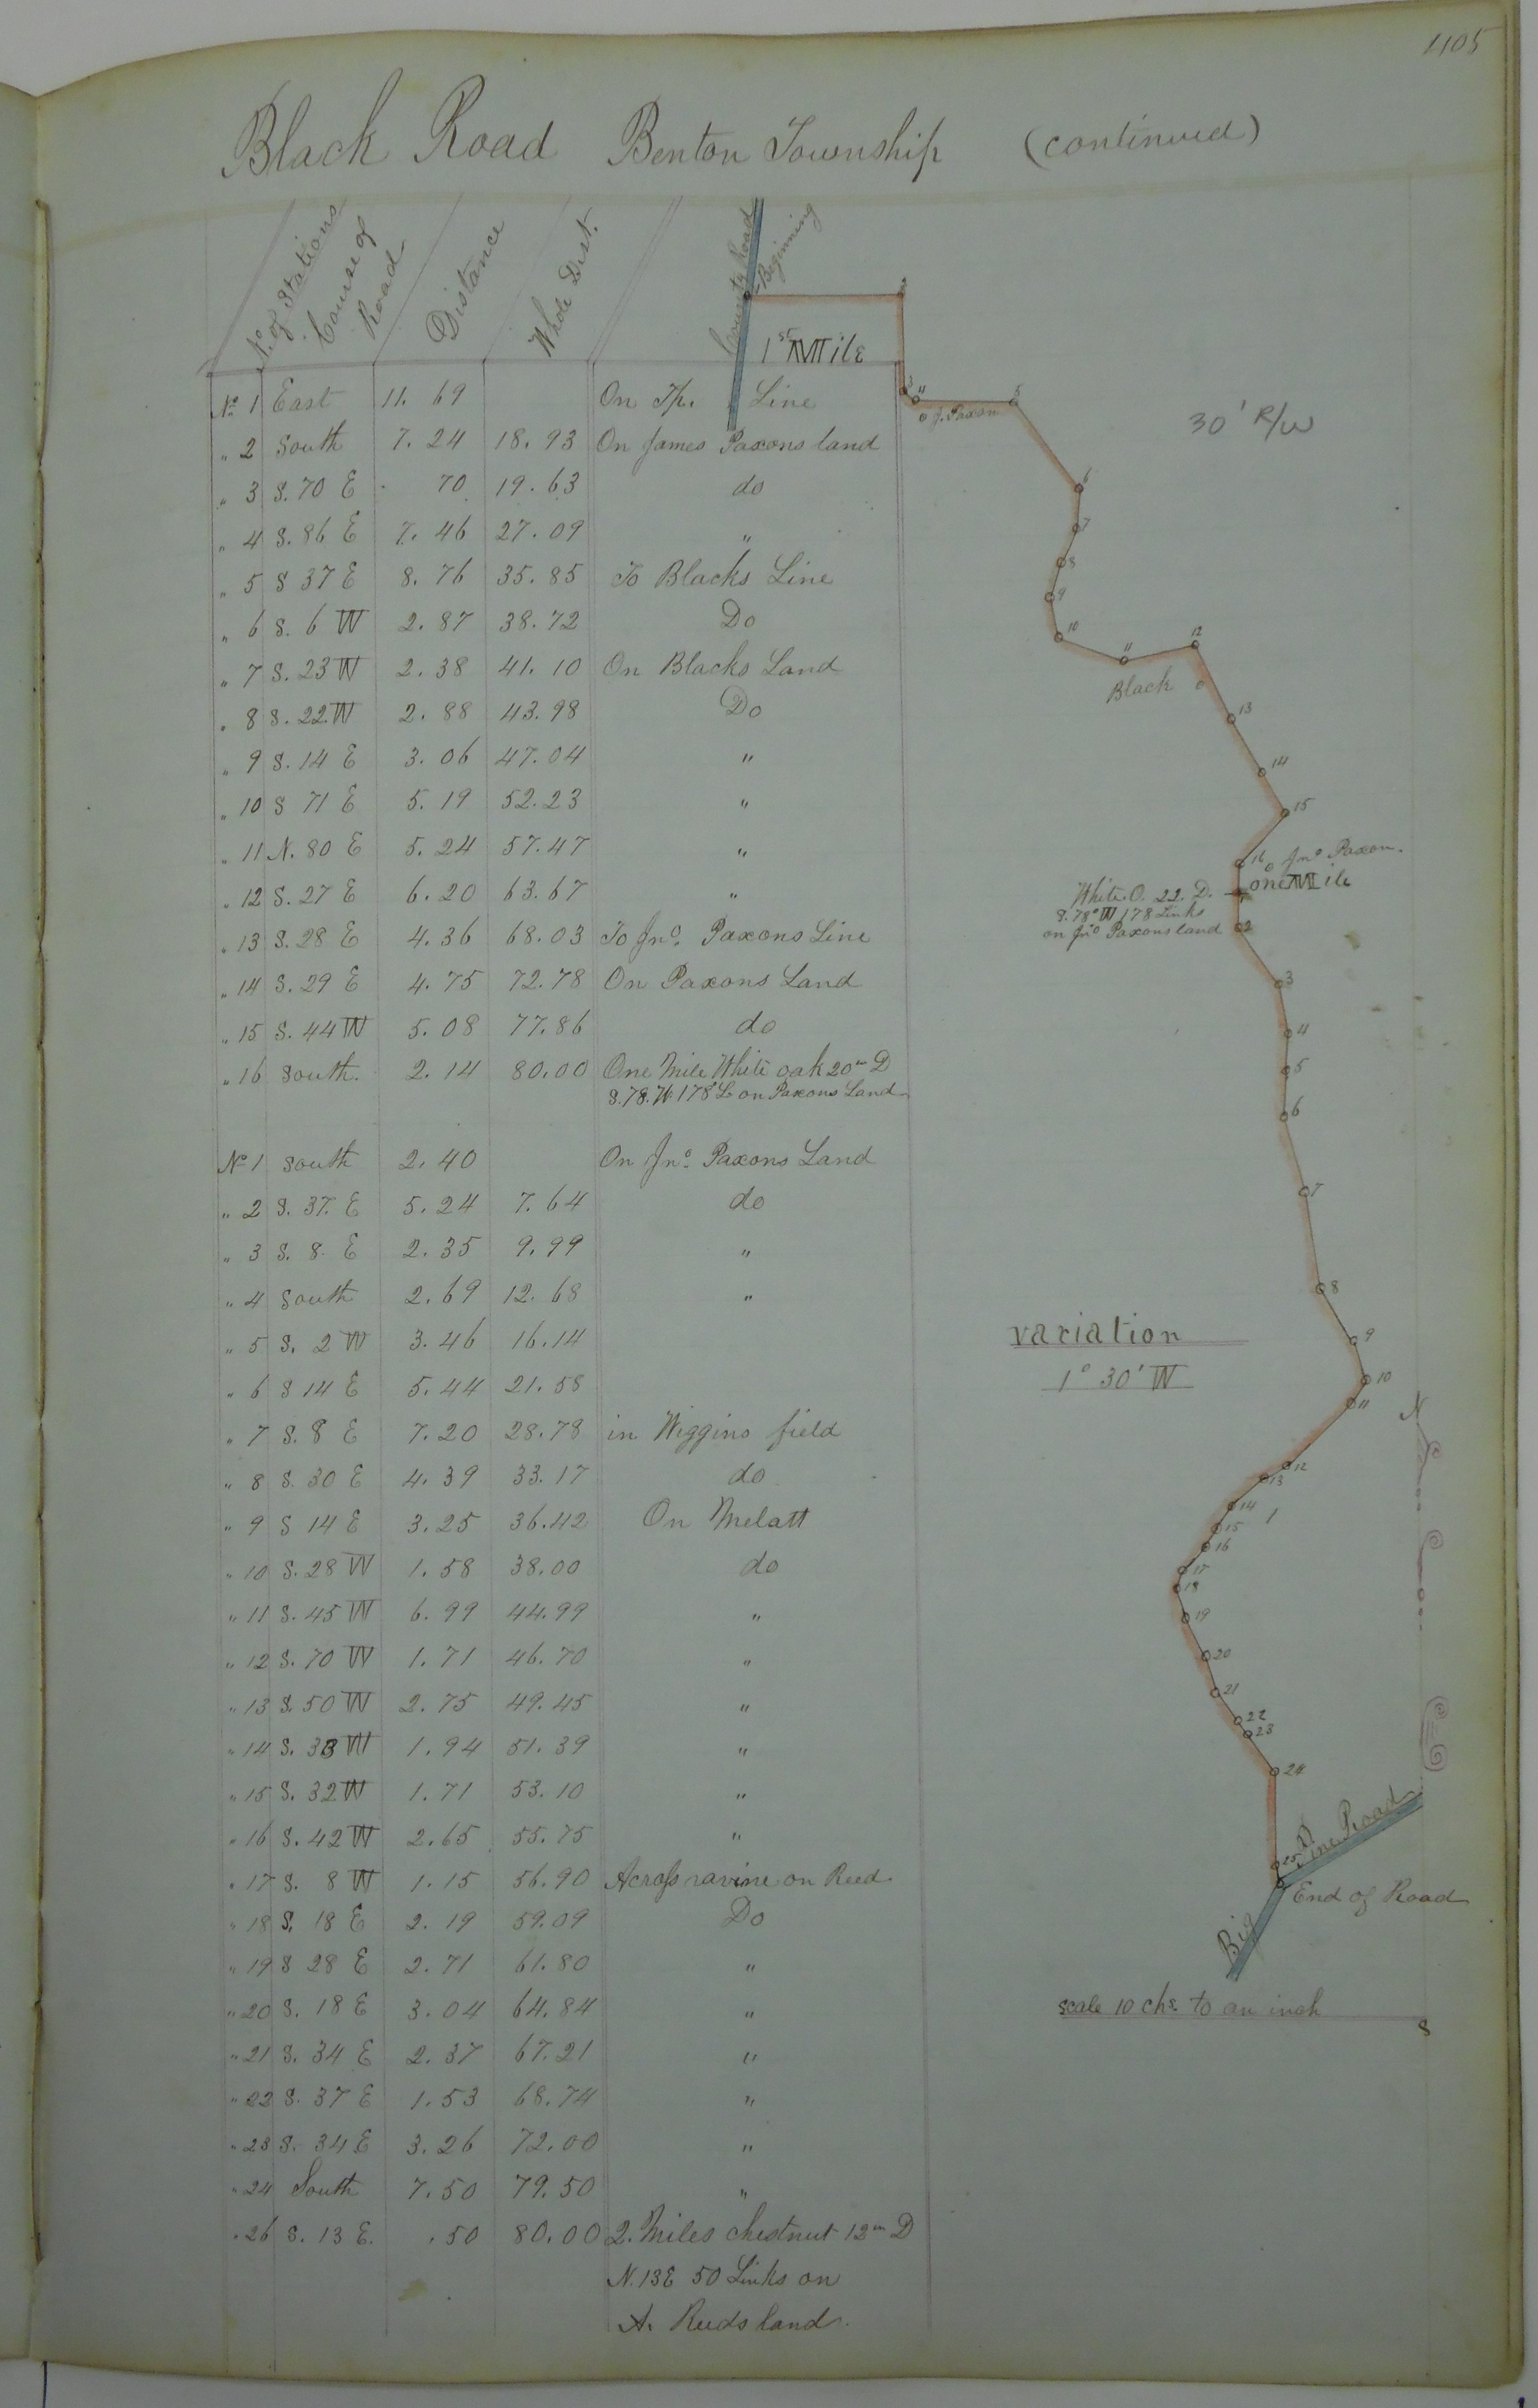 1105
Black Road Benton Township (continued)
No. of Stations
Course of Road
Distance
Whole Dist.
County Road
Beginning
1st Mile
No 1 East 11.69 On Tp. Line
" 2 South 7.24 18.93 On James Paxons land
" 3 S. 70 E 70 19.63 do
" 4 S. 86 E 7.46 27.09 "
" 5 S 37 E 8.76 35.85 To Blacks Line
" 6 S. 6 W 2.87 38.72 Do
" 7 S. 23 W 2.38 41.10 On Blacks Land
" 8 S. 22 W 2.88 43.98 Do
" 9 S. 14 E 3.06 47.04 "
" 10 S 71 E 5.19 52.23 "
" 11 N. 80 E 5.24 57.47 "
" 12 S. 27 E 6.20 63.67 "
" 13 S. 28 E 4.36 68.03 To Jno. Paxons Line
" 14 S. 29 E 4.75 72.78 On Paxons Land
" 15 S. 44 W 5.08 77.86 do
" 16 South. 2.14 80.00 One Mile White oak 20in D
S. 78. W 178 L on Paxons Land
No 1 South 2.40 On Jno. Paxons Land
" 2 S. 37. E 5.24 7.64 do
" 3 S. 8. E 2.35 9.99 "
" 4 South 2.69 12.68 "
" 5 S. 2 W 3.46 16.14
" 6 S 14 E 5.44 21.58
" 7 S. 8 E 7.20 28.78 in Wiggins field
" 8 S. 30 E 4.39 33.17 do
" 9 S 14 E 3.25 36.42 On Melatt
" 10 S. 28 W 1.58 38.00 do
" 11 S. 45 W 6.99 44.99 "
" 12 S. 70 W 1.71 46.70 "
" 13 S. 50 W 2.75 49.45 "
" 14 S. 33 W 1.94 51.39 "
" 15 S. 32 W 1.71 53.10 "
" 16 S. 42 W 2.65 55.75 "
" 17 S. 8 W 1.15 56.90 Across ravine on Reed
" 18 S. 18 E 2.19 59.09 Do
" 19 S 28 E 2.71 61.80 "
" 20 S. 18 E 3.04 64.84 "
" 21 S. 34 E 2.37 67.21 "
" 22 S. 37 E 1.53 68.74 "
" 23 S. 34 E 3.26 72.00 "
" 24 South 7.50 79.50 "
" 26 S. 13 E. .50 80.00 2. Miles chestnut 12in D
N. 13 E 50 Links on
A. Reeds land.
3
4
J. Paxon
5
30' R/W
6
7
8
9
10
11
12
Black
13
14
15
16
Jno Paxon.
one Mile
White O. 22. D.
S. 78° W 178 Links
on Jno Paxons land
2
3
4
5
6
7
8
variation
1° 30' W
9
10
11
N
12
13
14
15
16
17
18
19
20
21
22
23
24
25
Big Pine Road
End of Road
scale 10 chs to an inch
S